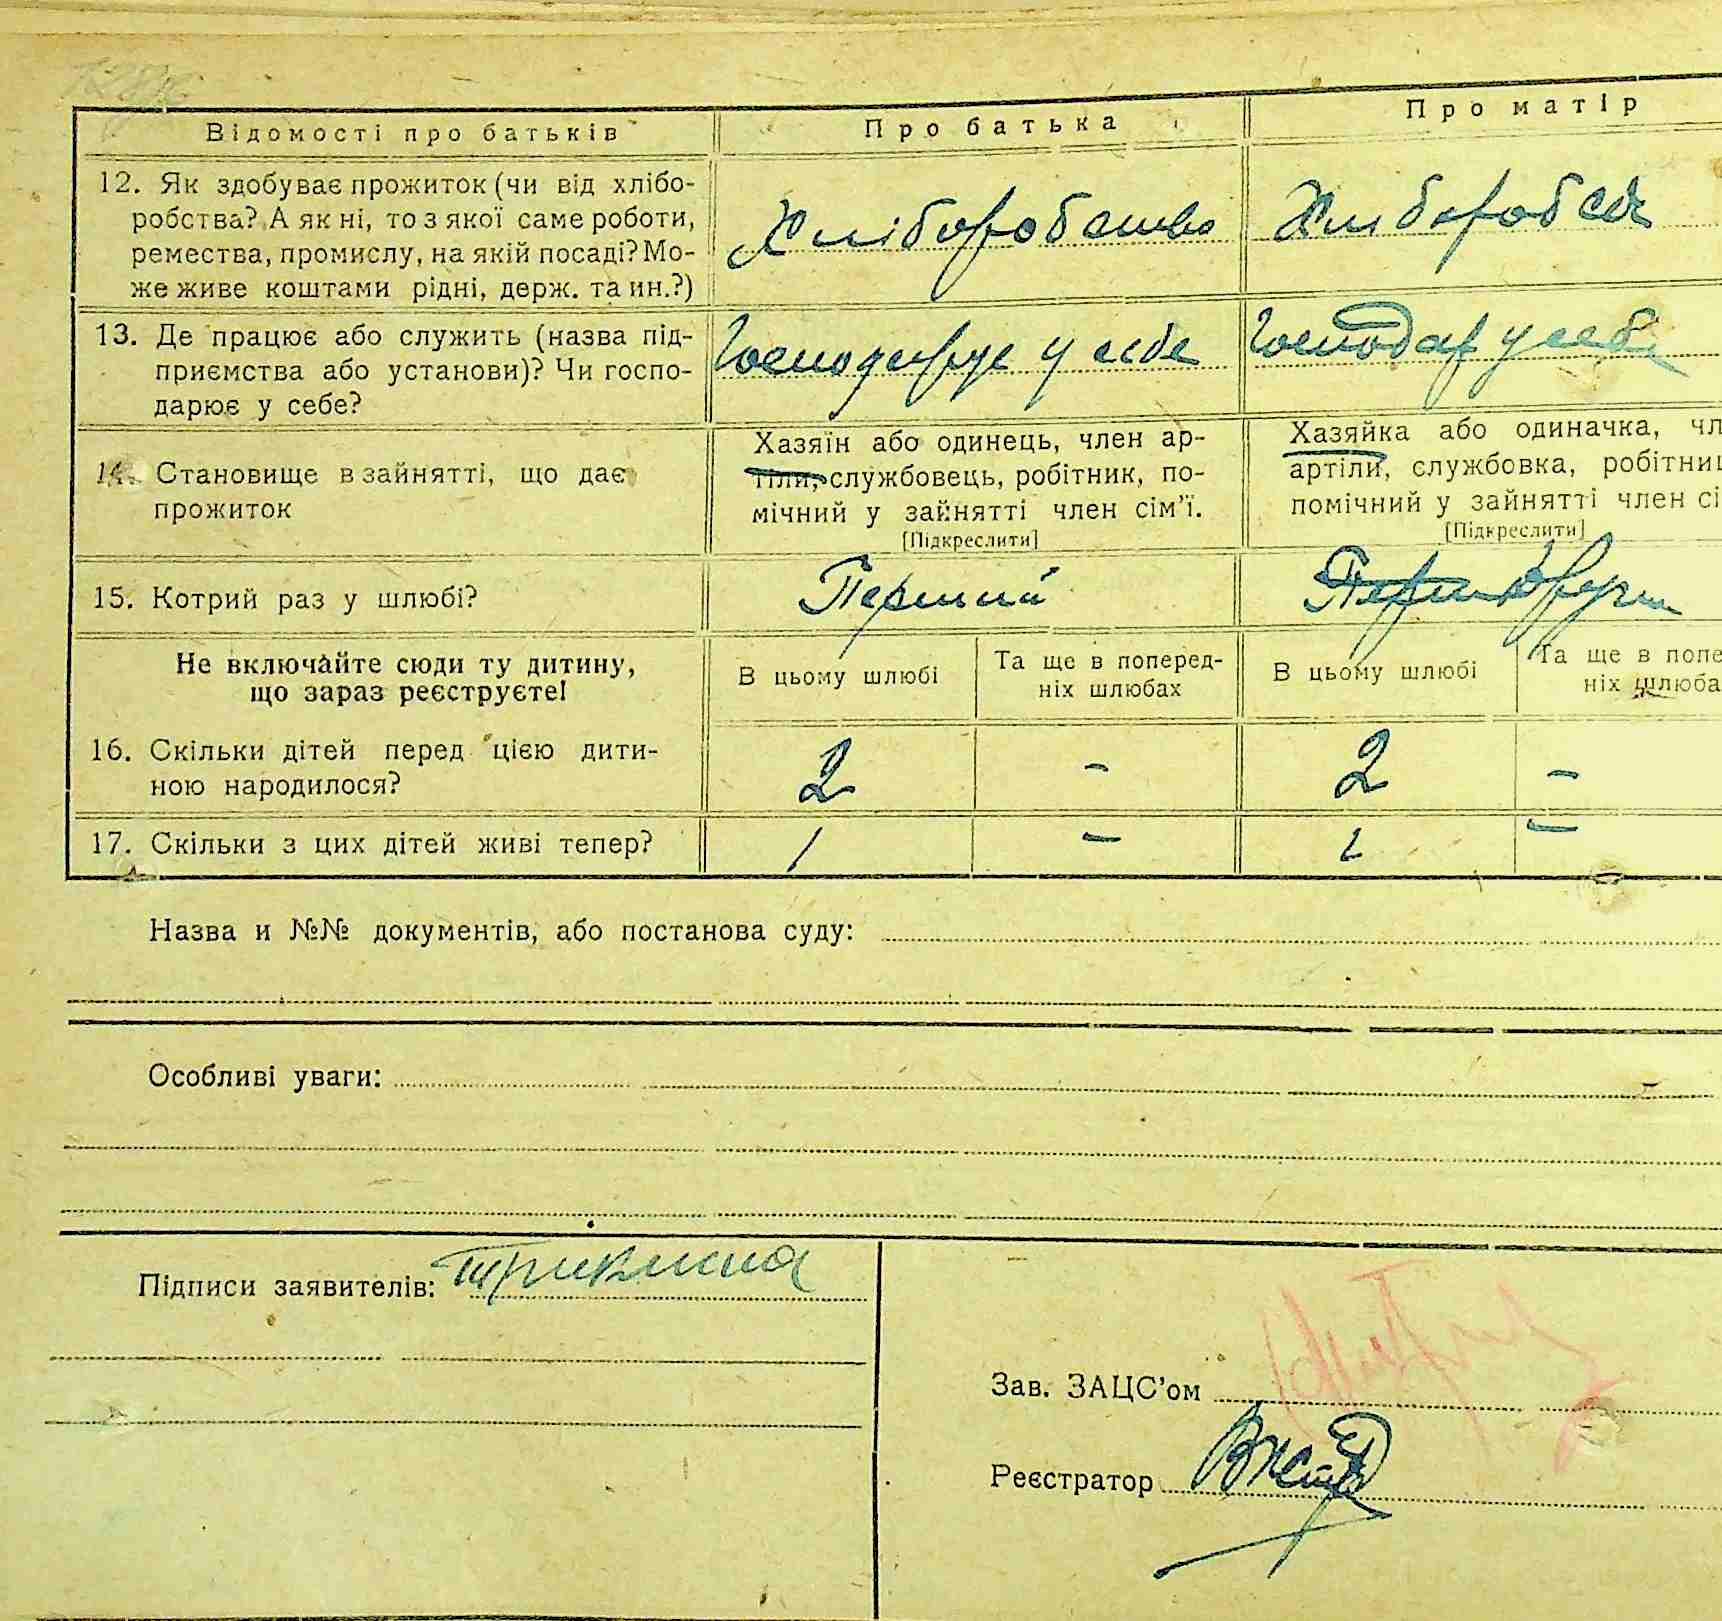 Відомості про батьків Про батька Про матір
12. Як здобуває прожиток (чи від хлібо-
робства? А як ні, то з якої саме роботи,
ремества, промислу, на якій посаді? Мо-
же живе коштами рідні, держ. та ин.?)
Хліборобство
13. Де працює або служить (назва під-
приємства або установи)? Чи госпо-
дарює у себе?
Господарює у себе
Господар у себе
14. Становище в зайнятті, що дає
прожиток
Хазяїн або одинець, член ар-
тіли, службовець, робітник, по-
мічний у зайнятті член сім'ї.
[Підкреслити]
Хазяйка або одиначка, чл
артіли, службовка, робітниц
помічний у зайнятті член сі
[Підкреслити]
15. Котрий раз у шлюбі?
Перший
Не включайте сюди ту дитину,
що зараз реєструєте!
В цьому шлюбі
Та ще в поперед-
ніх шлюбах
В цьому шлюбі
Та ще в попе
ніх шлюба
16. Скільки дітей перед цією дити-
ною народилося?
2 - 2 -
17. Скільки з цих дітей живі тепер?
1 - 1 -
Назва и №№ документів, або постанова суду:
Особливі уваги:
Підписи заявителів:
Зав. ЗАЦС'ом
Реєстратор